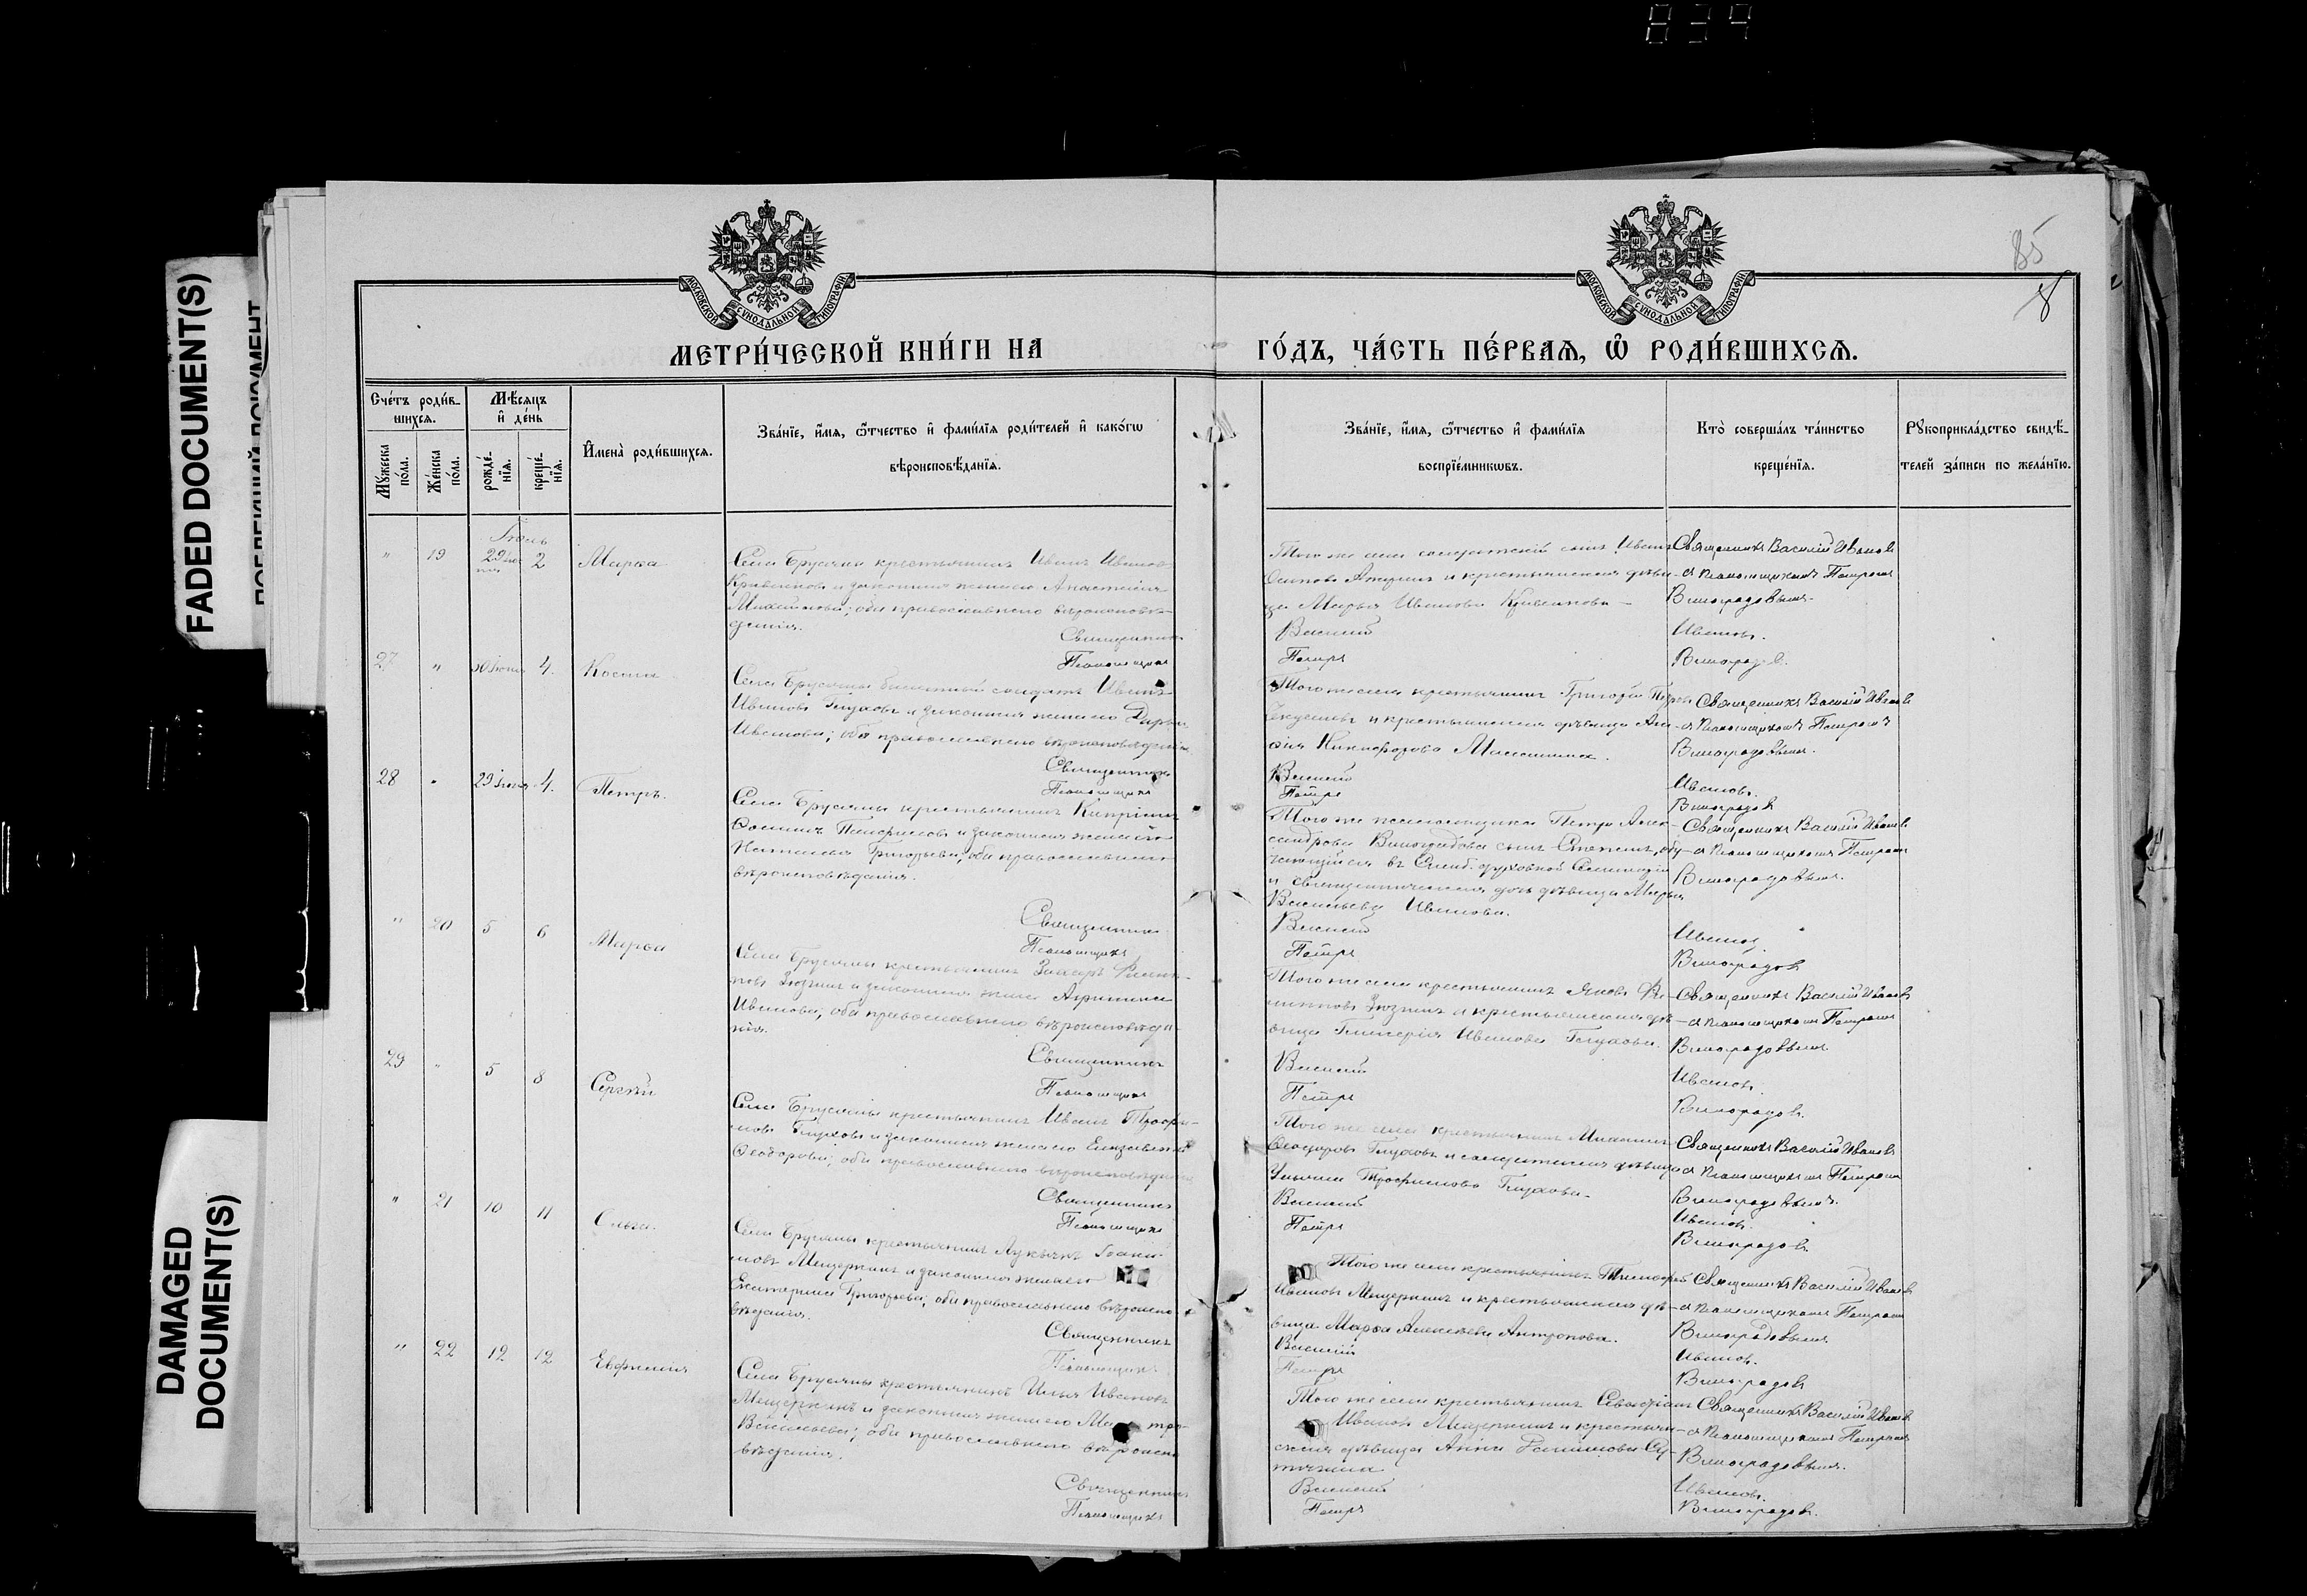 834
FADED DOCUMENT(S)
DAMAGED
DOCUMENT(S)
85
8
МОСКОВСКОЙ СѴНОДАЛЬНОЙ ТИПОГРАФІИ
МОСКОВСКОЙ СѴНОДАЛЬНОЙ ТИПОГРАФІИ
МЕТРИ́ЧЕСКОЙ КНИ́ГИ НА ГО́ДЪ, ЧА́СТЬ ПЕ́РВАѦ, Ѽ РОДИ́ВШИХСѦ.
Сче́тъ роди́в-
шихсѧ.
Мѣ́сѧцъ
и҆ де́нь
Мꙋ́жеска по́ла.
Же́нска по́ла.
рожде́-
нїѧ.
креще́-
нїѧ.
И҆мена̀ роди́вшихсѧ.
Зва́нїе, и҆́мѧ, ѻ҆́тчество и҆ фами́лїѧ роди́телей и҆ како́гѡ
вѣроисповѣ́данїѧ.
Зва́нїе, и҆́мѧ, ѻ҆́тчество и҆ фами́лїѧ
воспрїе́мникѡвъ.
Кто̀ соверша́лъ та́инство
креще́нїѧ.
Рꙋкоприкла́дство свидѣ́-
телей за́писи по жела́нїю.
Іюль
" 19 29 2
Села Брусяны крестьянинъ Иванъ Ивановъ
и законная жена его Анастасія
оба православнаго вѣроисповѣ-
данія.
Священникъ
Псаломщикъ
Того же села Иванъ
Марья Иванова
Василій
Петръ
Священникъ Василій Ивановъ
съ псаломщикомъ Петромъ
Виноградовымъ.
Ивановъ.
Виноградовъ.
27 " 30 Іюня 4. Косма
Села Брусяны солдатъ Иванъ
Ивановъ Глуховъ и законная жена его Дарья
Иванова; оба православнаго вѣроисповѣданія
Священникъ
Псаломщикъ
Того же села крестьянинъ Григорій
и крестьянская дѣвица
Никифорова
Василій
Петръ
Священникъ Василій Ивановъ
съ псаломщикомъ Петромъ
Виноградовымъ.
Ивановъ.
Виноградовъ
28 " 29 Іюня 4. Петръ.
Села Брусяны крестьянинъ
и законная жена его
Наталья Григорьева; оба православнаго
вѣроисповѣданія.
Священникъ
Псаломщикъ
Того же псаломщика Петра Алек-
сандрова Виноградова сынъ обу-
чающійся въ Симб. духовной Семинаріи
и священническая дочь дѣвица Марья
Васильева Иванова.
Василій
Петръ
Священникъ Василій Ивановъ
съ псаломщикомъ Петромъ
Виноградовымъ.
Ивановъ
Виноградовъ
" 20 5 6 Марѳа
Села Брусяны крестьянинъ Захаръ Филип-
повъ Зюзинъ и законная жена Агрипина
Иванова; оба православнаго вѣроисповѣда-
нія.
Священникъ
Псаломщикъ
Того же села крестьянинъ Яковъ Фи-
липповъ Зюзинъ и крестьянская дѣ-
вица Гликерія Иванова Глухова.
Василій
Петръ
Священникъ Василій Ивановъ
съ псаломщикомъ Петромъ
Виноградовымъ
Ивановъ.
Виноградовъ.
29 " 5 8 Сергѣй
Села Брусяны крестьянинъ Иванъ Трофи-
мовъ Глуховъ и законная жена его Елизавета
Ѳеодорова; оба православнаго вѣроисповѣданія
Священникъ
Псаломщикъ
Того же села крестьянинъ Михаилъ
Ѳеодоровъ Глуховъ и солдатская дѣвица
Трофимова Глухова.
Василій
Петръ
Священникъ Василій Ивановъ
съ псаломщикомъ Петромъ
Виноградовымъ.
Ивановъ.
Виноградовъ.
" 21 10 11 Ольга.
Села Брусяны крестьянинъ Лукьянъ
Мещерякинъ и законная жена его
Екатерина Григорьева; оба православнаго вѣроиспо-
вѣданія.
Священникъ
Псаломщикъ
Того же села крестьянинъ Тимофей
Ивановъ Мещерякинъ и крестьянская дѣ-
вица Марѳа Алексѣева Антропова.
Василій
Петръ
Священникъ Василій Ивановъ
съ псаломщикомъ Петромъ
Виноградовымъ
Ивановъ.
Виноградовъ
" 22 12 12 Евфимія
Села Брусяны крестьянинъ Илья Ивановъ
Мещерякинъ и законная жена его
Васильева; оба православнаго вѣроиспо-
вѣданія.
Священникъ
Псаломщикъ
Того же села крестьянинъ
Ивановъ Мещерякинъ и крестьян-
ская дѣвица Анна
Василій
Петръ
Священникъ Василій Ивановъ
съ псаломщикомъ Петромъ
Виноградовымъ.
Ивановъ.
Виноградовъ.